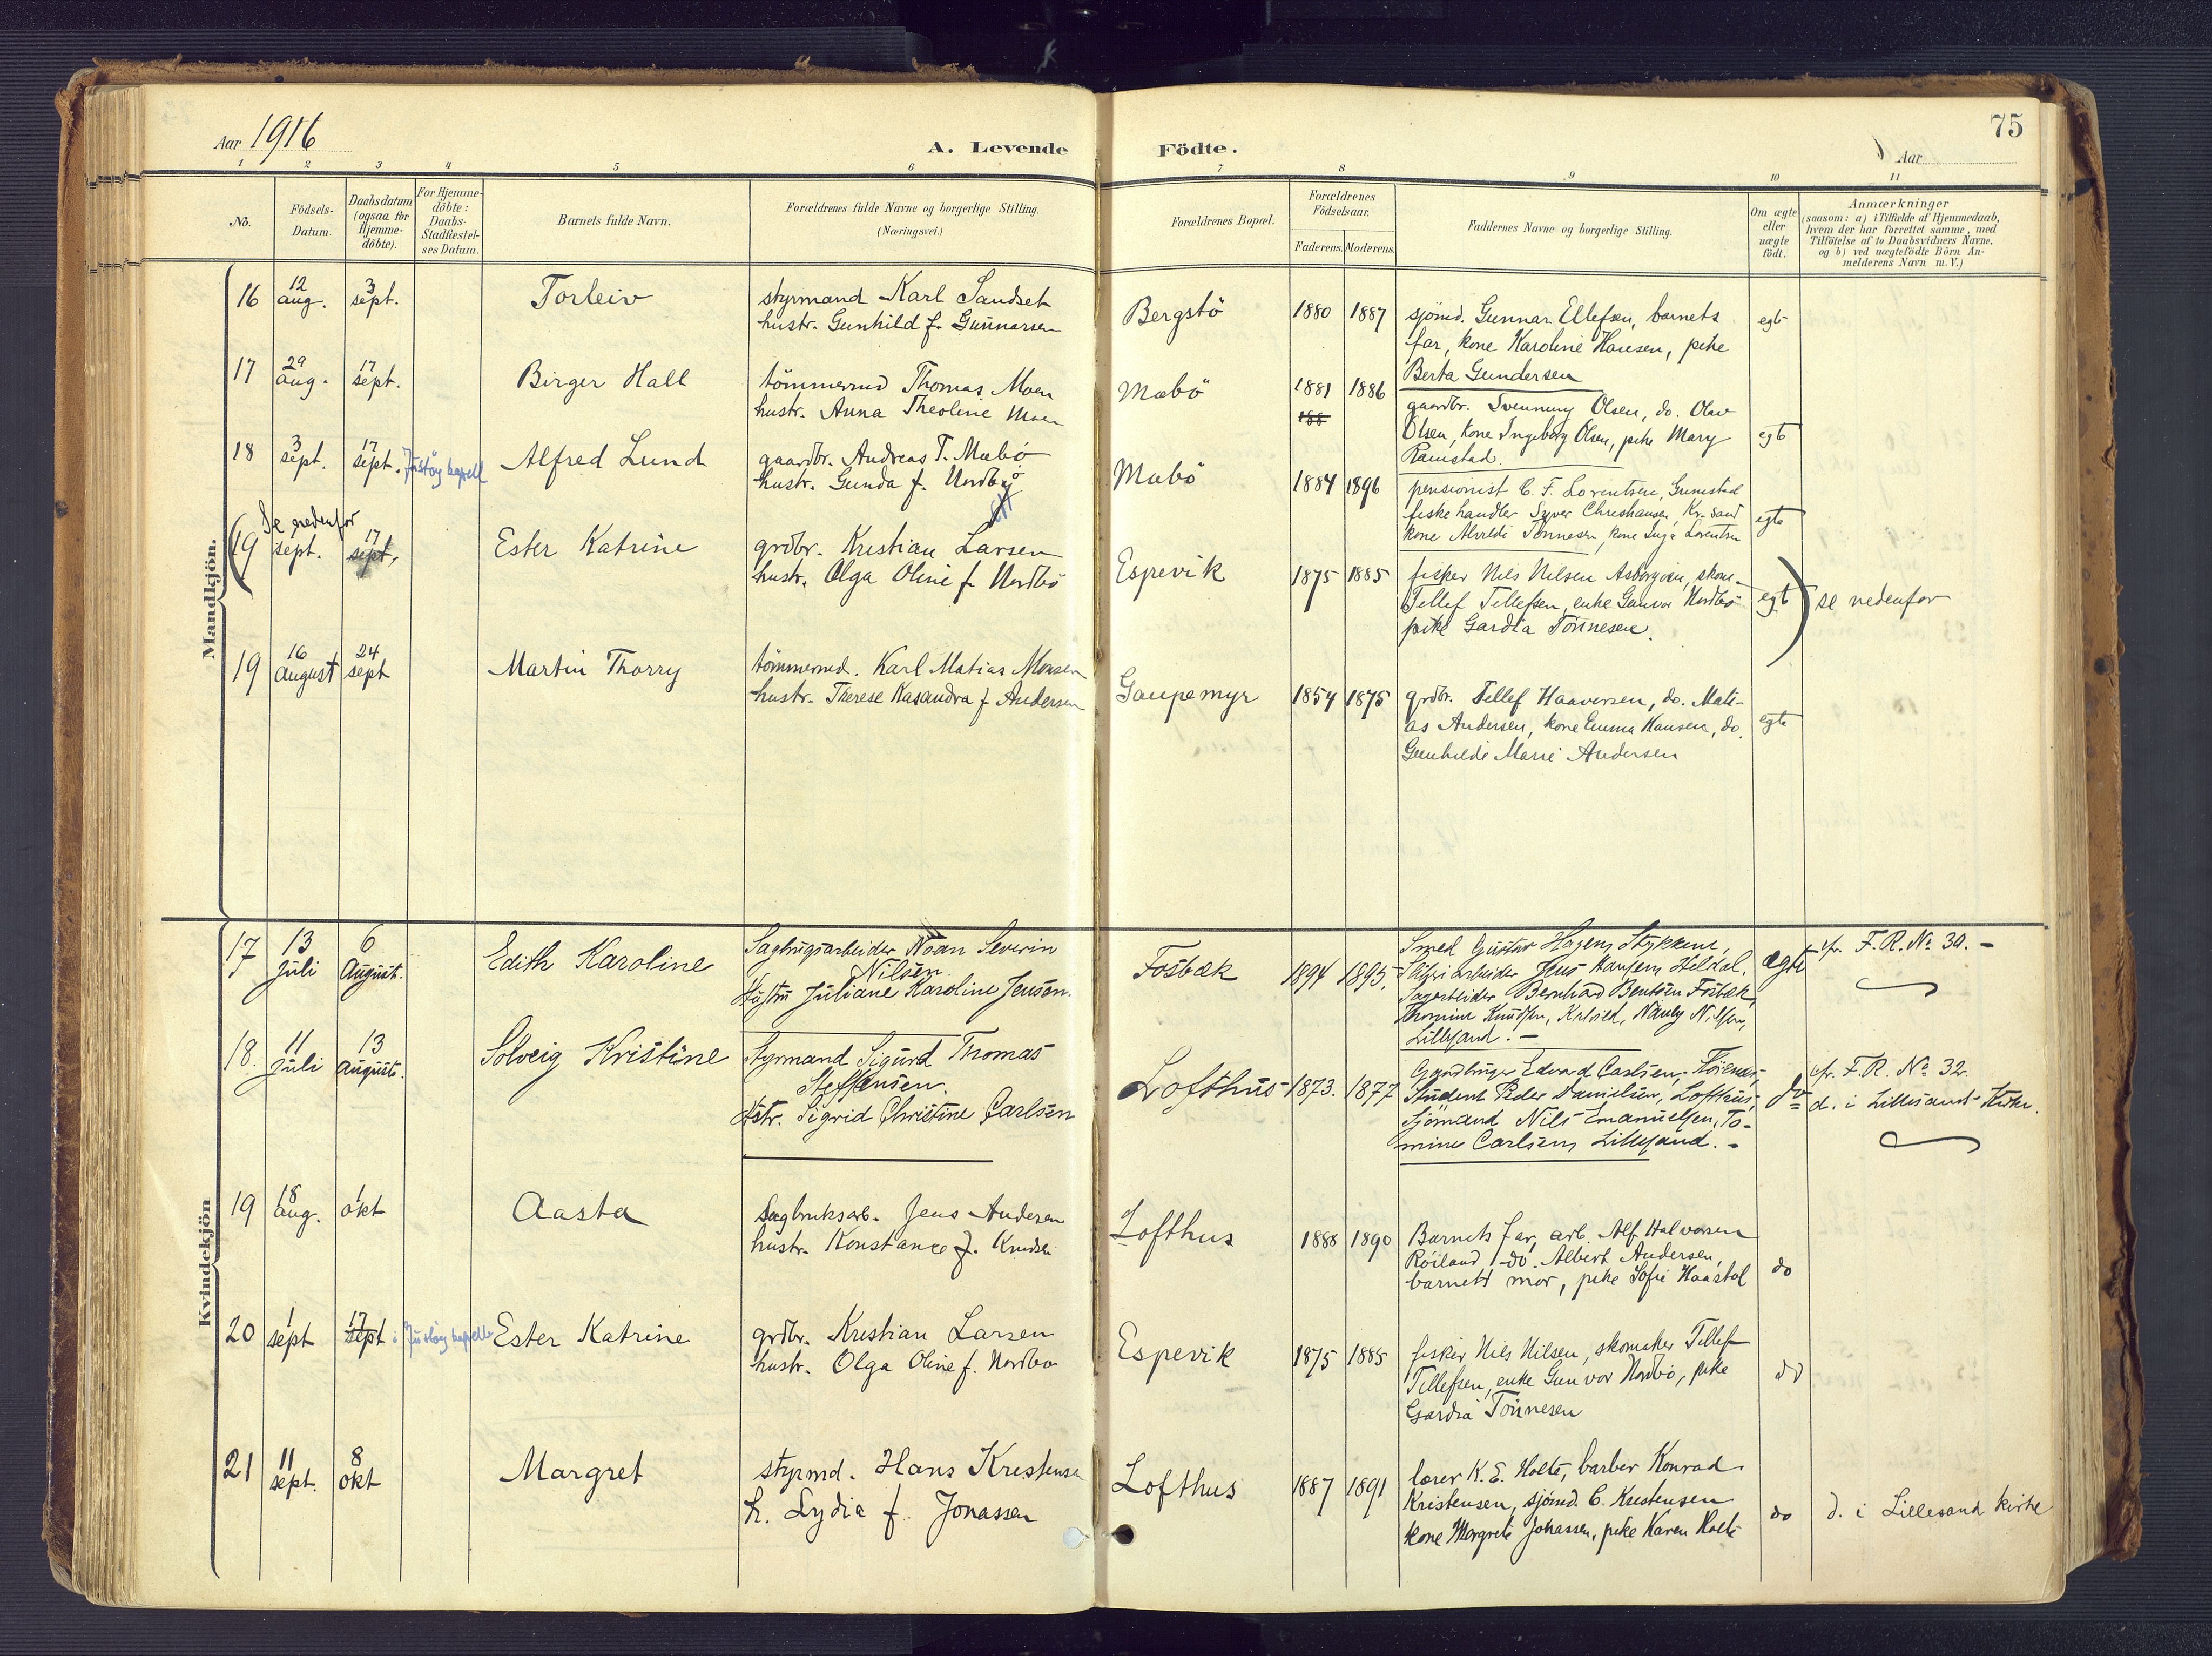 75
Aar 1916
A. Levende Födte.
Aar
1 2 3 4 5 6 7 8 9 10 11
No.
Födsels-
Datum.
Daabsdatum
(ogsaa for
Hjemme-
döbte).
For Hjemme-
döbte:
Daabs-
Stadfæstel-
ses Datum.
Barnets fulde Navn.
Forældrenes fulde Navne og borgerlige Stilling.
(Næringsvei.)
Forældrenes Bopæl.
Forældrenes
Födselsaar.
Faderens. Moderens.
Faddernes Navne og borgerlige Stilling.
Om ægte
eller
uægte
födt.
Anmærkninger
(saasom: a) i Tilfælde af Hjemmedaab,
hvem der har forrettet samme, med
Tilföielse af to Daabsvidners Navne.
og b) ved uægtefödte Börn An-
melderens Navn m. V.)
Mandkjön.
16 12 aug. 3 sept. Torleiv
styrmand Karl Sandset
hustr. Gunhild f. Gunnarsen
Bergstö 1880 1887
sjömd. Gunnar Ellefsen, barnets
far, kone Karoline Hansen, pike
Berta Gundersen
egte
17 29 aug. 17 sept. Birger Hall
tömmermd Thomas Moen
hustr. Anna Theoline Moen
Mæbö 1881 1886
188
gaardbr. Svennung Olsen, do. Olav
Olsen, kone Ingeborg Olsen, pike Mary
Ramstad.
egte
18 3 sept. 17 sept. Justöy kapell Alfred Lund
gaardbr. Andreas T. Mæbö
hustr. Gunda f. Nordbö
Mæbö 1884 1896
pensionist C. F. Lorentsen, Grimstad
fiskehandler Syver Christiansen, Kr.sand
kone Alvilde Tönnesen, kone Inga Lorentsen
egte
Se nedenfor
(19 sept. 17 sept. Ester Katrine
grdbr. Kristian Larsen
hustr. Olga Oline f. Nordbö
Espevik 1875 1885
fisker Nils Nilsen Asbergvien, skom.
Tellef Tellefsen, enke Gunvor Nordbö
pike Gardia Tönnesen.
egte) se nedenfor
19 16 august 24 sept Martin Thorry
tömmermd. Karl Matias Monsen
hustr. Therese Kasandra f Andersen
Gaupemyr 1854 1875
grdbr. Tellef Haaversen, do. Mati-
as Andersen, kone Emma Hansen, do.
Gunhilde Marie Andersen
egte
Kvindekjön
17 13 Juli 6 August. Edith Karoline
Sagbrugsarbeider Noan Severin
Nilsen
Hustru Juliane Karoline Jensen.
Fosbæk 1894 1895.
Smed Gustav Hagens Stykkene,
arbeider Jens Hansen, Heldal,
Sagarbeider Bernhard Bentsen Fosbæk,
Thomine Knudsen, Nauly Nilsen,
Lillesand. -
ægte cfr. F. R. No 30. -
18. 11 Juli 13 August. Solveig Kristine
Styrmand Sigurd Thomas
Steffensen
Hstr. Sigrid Christine Carlsen
Lofthus 1873. 1877
Gaardbruger Edvard Carlsen,
Student Peder Danielsen, Lofthus,
Sjömand Nils Emanuelsen, To-
mine Carlsen, Lillesand. -
do cfr. F. R. No 32.
d. i Lillesands Kirke.
19 18 aug. 1 okt Aasta
Sagbruksarb. Jens Andersen
hustr. Konstance f. Knudsen
Lofthus 1888 1890
Barnets far, arb. Alf Halvorsen
Röiland, do. Albert Andersen,
barnets mor, pike Sofie Haastöl
do
20 1 sept 17 sept i Justöy kapell Ester Katrine
grdbr. Kristian Larsen
hustr. Olga Oline f. Nordbö
Espevik 1875 1885
fisker Nils Nilsen, skomaker Tellef
Tellefsen, enke Gunvor Nordbö, pike
Gardia Tönnesen
do
21 11 sept. 8 okt Margret
styrmd. Hans Kristensen
h. Lydia f. Jonassen
Lofthus 1887 1891
lærer K. E. Holte, barber Konrad
Kristensen, sjömd. C. Kristensen
kone Margrete Johassen, pike Karen Holte
do d. i Lillesand kirke